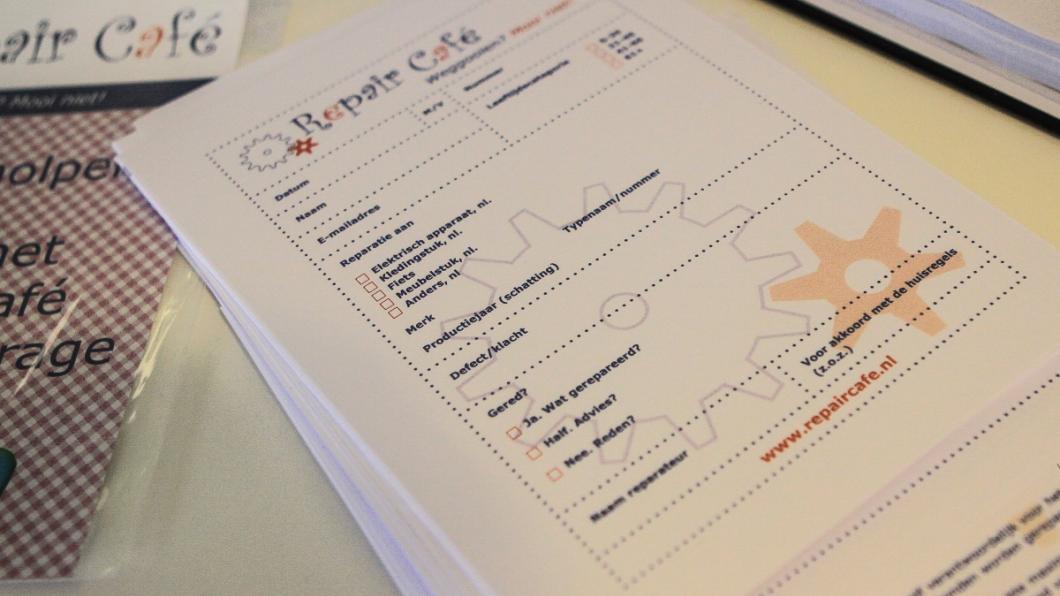 air Café
Mooi niet!
holpen
net
afé
rage
Repair Café
Weggooien? Mooi niet!
Datum
M/V
Nummer
Naam
Leeftijdscategorie
E-mailadres
Reparatie aan
Elektrisch apparaat, nl.
Kledingstuk, nl.
Fiets
Meubelstuk, nl.
Anders, nl.
Merk
Typenaam/nummer
Productiejaar (schatting)
Defect/klacht
Gered?
Ja. Wat gerepareerd?
Half. Advies?
Nee. Reden?
Naam reparateur
Voor akkoord met de huisregels
(z.o.z.)
www.repaircafe.nl
verantwoordelijk voor